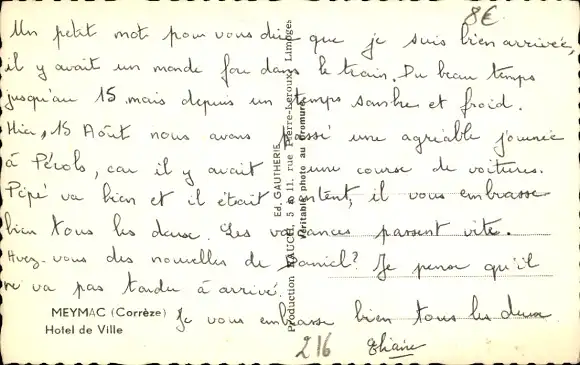 8€
Un petit mot pour vous dire que je suis bien arrivée,
il y avait un monde fou dans le train. Du beau temps
jusqu'au 15 mais depuis un temps sombre et froid.
Hier, 15 Août nous avons passé une agréable journée
à Pérols, car il y avait une course de voitures.
Pépé va bien et il était content, il vous embrasse
bien tous les deux. Les vacances passent vite.
Avez-vous des nouvelles de Daniel? Je pense qu'il
ne va pas tarder à arrivé.
Je vous embrasse bien tous les deux
Eliane
216
MEYMAC (Corrèze)
Hotel de Ville
Ed. GAUTHERIE
Production HAUCH, 5 & 11, rue Pierre-Leroux, Limoges
Véritable photo au bromure